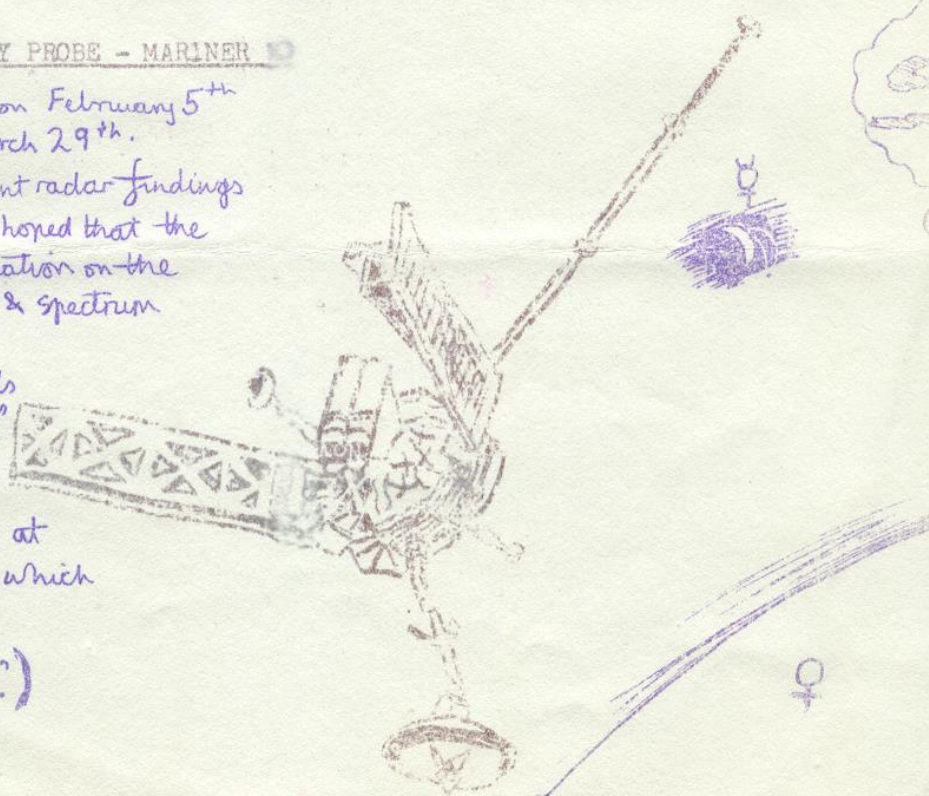 Y PROBE - MARINER 10
on February 5th
rch 29th.
nt radar findings
hoped that the
ation on the
& spectrum
s
at
which
?)